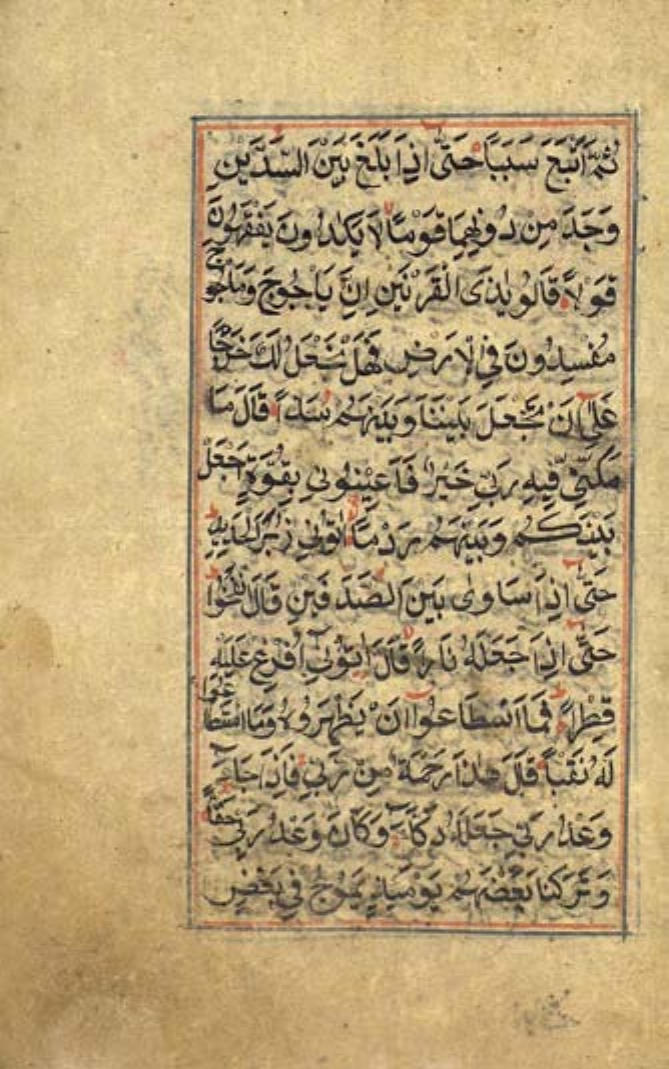 ثُمَّ اَتْبَعَ سَبَبًا حَتّٰى اِذَا بَلَغَ بَيْنَ السَّدَّيْنِ
وَجَدَ مِنْ دُونِهِمَا قَوْمًا لَا يَكَادُونَ يَفْقَهُونَ
قَوْلًا قَالُو يٰذَى الْقَرْنَيْنِ اِنَّ يَاْجُوجَ وَمَاْجُوجَ
مُفْسِدُونَ فِى الْاَرْضِ فَهَلْ نَجْعَلُ لَكَ خَرْجًا
عَلٰى اَنْ تَجْعَلَ بَيْنَنَا وَبَيْنَهُمْ سَدًّا قَالَ مَا
مَكَّنِّى فِيهِ رَبِّى خَيْرٌ فَاَعِينُونِى بِقُوَّةٍ اَجْعَلْ
بَيْنَكُمْ وَبَيْنَهُمْ رَدْمًا اٰتُونِى زُبَرَ الْحَدِيدِ
حَتّٰى اِذَا سَاوٰى بَيْنَ الصَّدَفَيْنِ قَالَ انْفُخُوا
حَتّٰى اِذَا جَعَلَهُ نَارًا قَالَ اٰتُونِى اُفْرِغْ عَلَيْهِ
قِطْرًا فَمَا اسْطَاعُوا اَنْ يَظْهَرُوهُ وَمَا اسْتَطَاعُوا
لَهُ نَقْبًا قَالَ هٰذَا رَحْمَةٌ مِنْ رَبِّى فَاِذَا جَاءَ
وَعْدُ رَبِّى جَعَلَهُ دَكَّاءَ وَكَانَ وَعْدُ رَبِّى حَقًّا
وَتَرَكْنَا بَعْضَهُمْ يَوْمَئِذٍ يَمُوجُ فِى بَعْضٍ